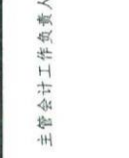 主管会计工作负责人